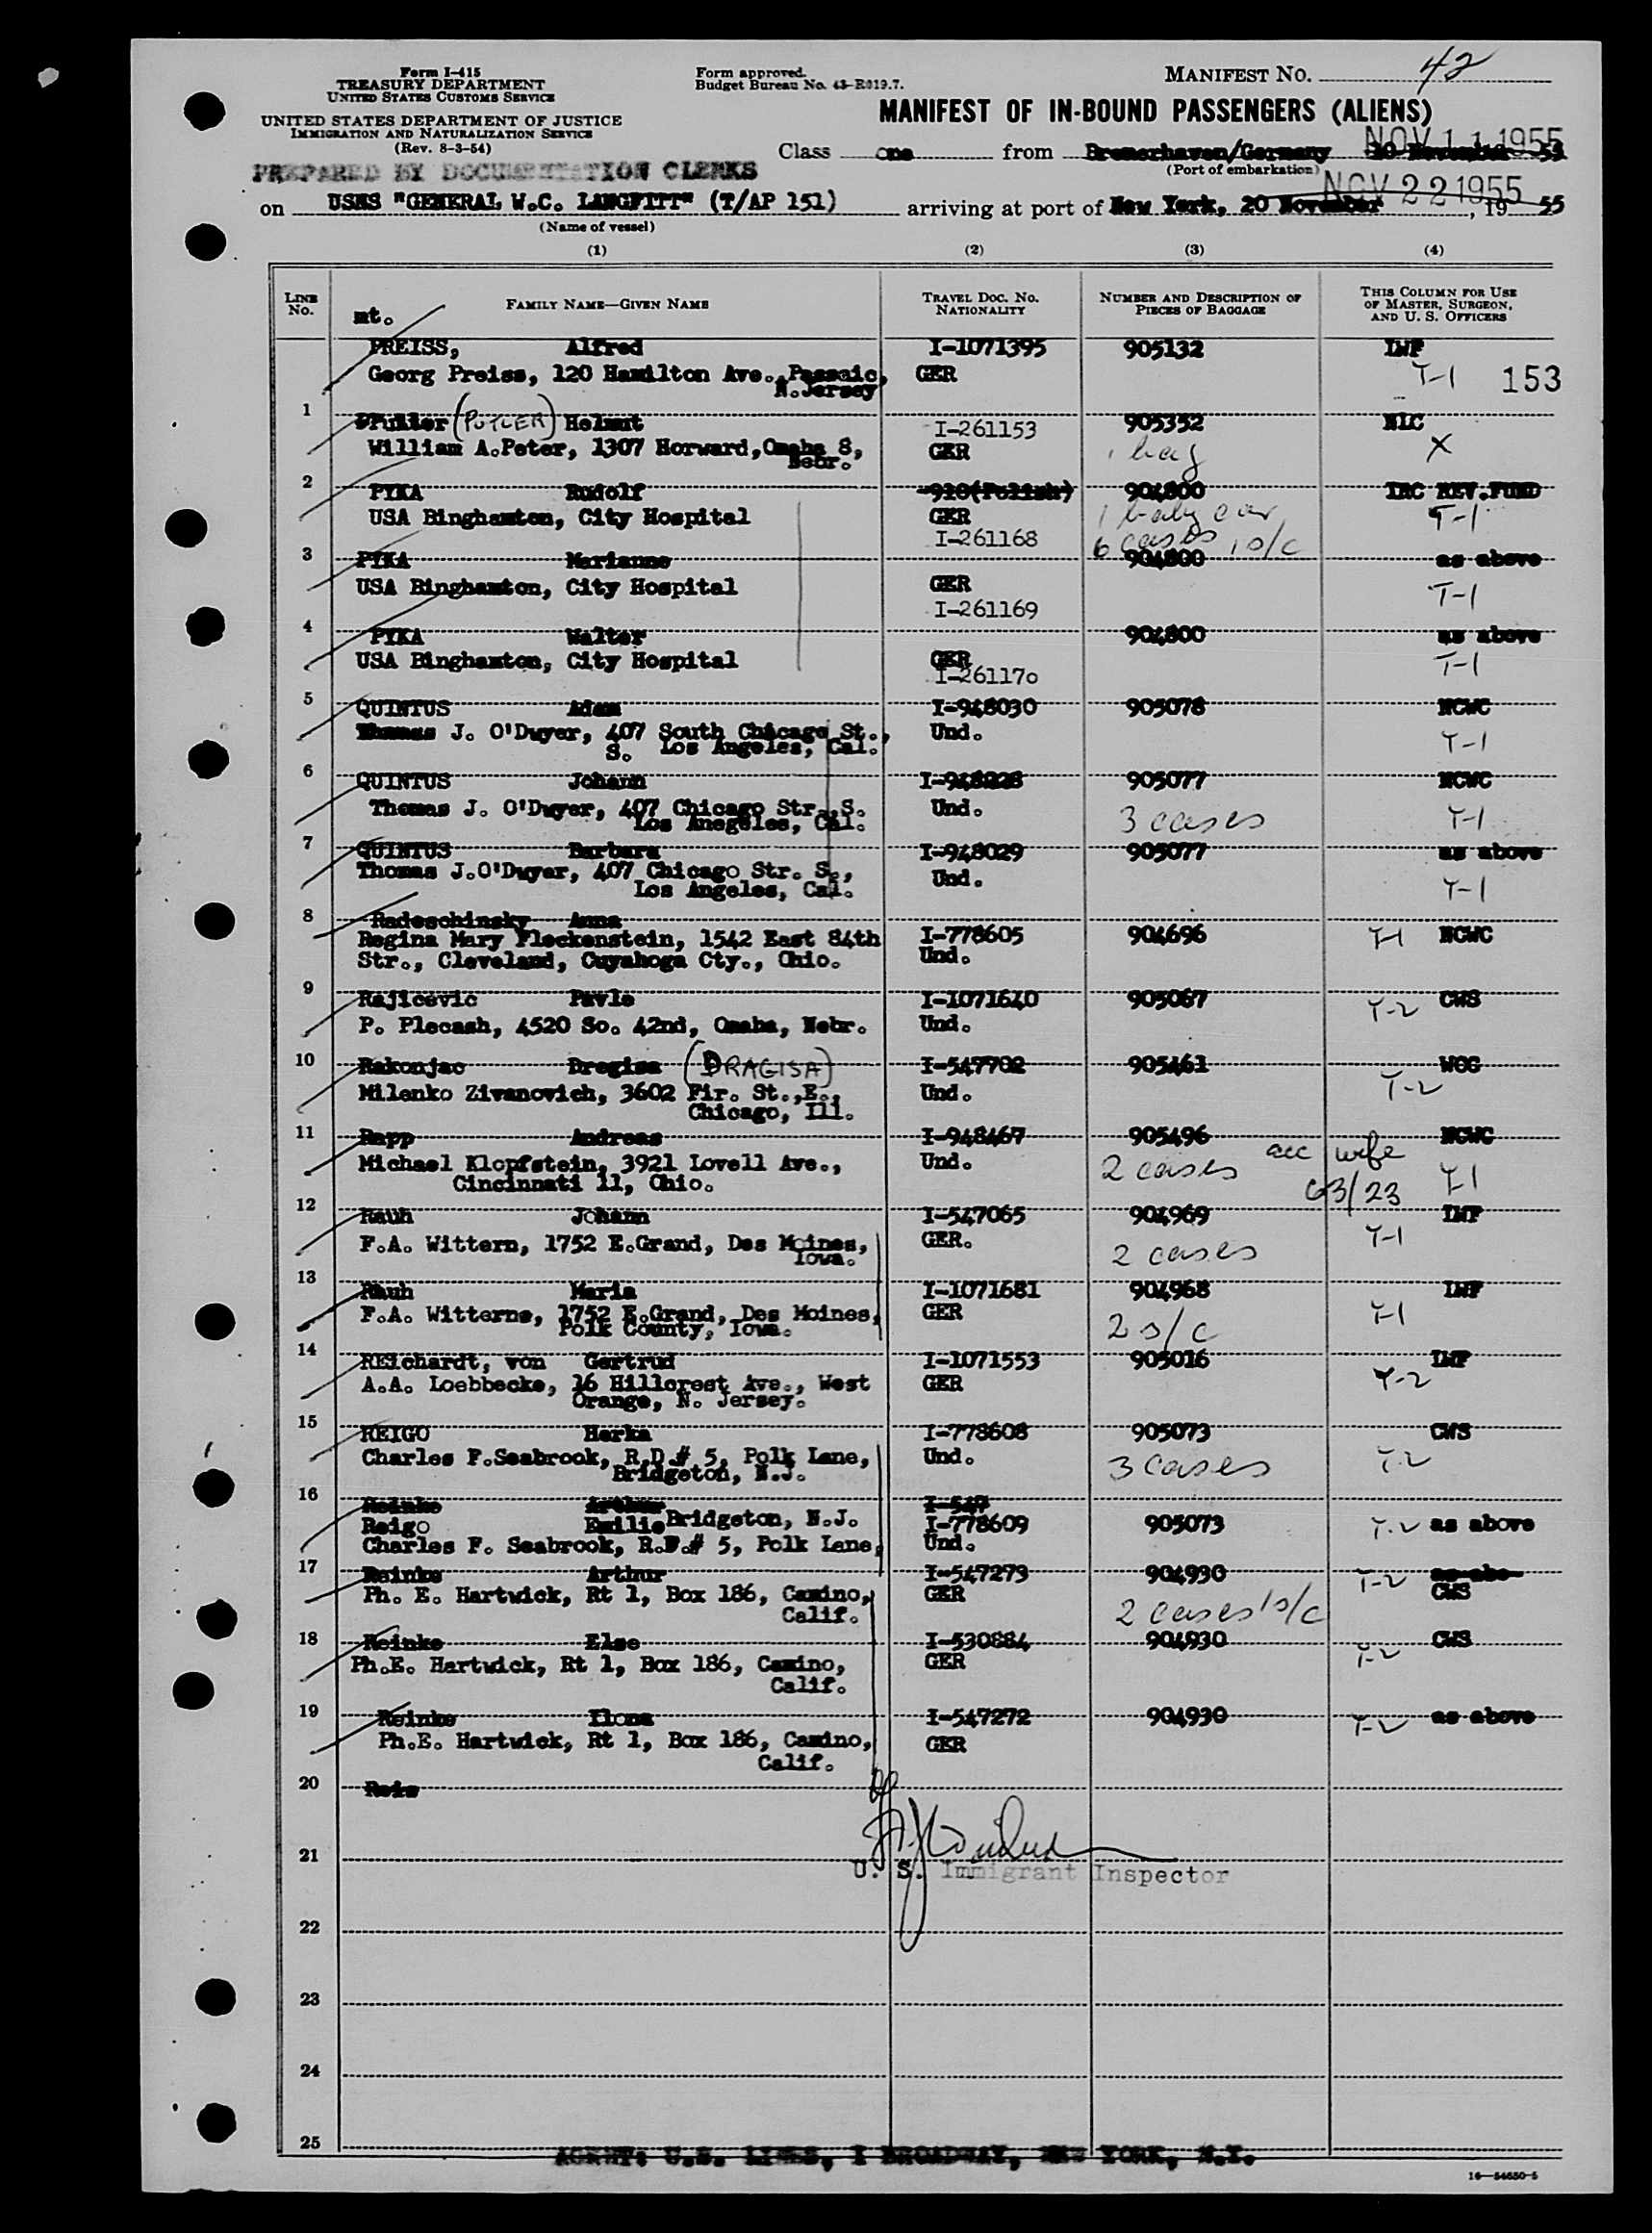 Form I-415
TREASURY DEPARTMENT
UNITED STATES CUSTOMS SERVICE
UNITED STATES DEPARTMENT OF JUSTICE
IMMIGRATION AND NATURALIZATION SERVICE
(Rev. 8-3-54)
Form approved.
Budget Bureau No. 43-R019.7.
MANIFEST NO. 42
MANIFEST OF IN-BOUND PASSENGERS (ALIENS)
NOV 11 1955
Class one from Bremerhaven/Germany
(Port of embarkation)
PREPARED BY DOCUMENTATION CLERKS
NOV 22 1955
on USNS "GENERAL W.C. LANGFITT" (T/AP 151) arriving at port of New York, 20 November, 19 55
(Name of vessel)
(1) (2) (3) (4)
LINE No. FAMILY NAME—GIVEN NAME TRAVEL DOC. NO. NATIONALITY NUMBER AND DESCRIPTION OF PIECES OF BAGGAGE THIS COLUMN FOR USE OF MASTER, SURGEON, AND U. S. OFFICERS
mt.
PREISS, Alfred I-1071395 905132 LWF
Georg Preiss, 120 Hamilton Ave., Passaic, GER T-1 153
N.Jersey
1 (PUTLER) Helmut I-261153 905352 NLC
William A.Peter, 1307 Horward, Omaha 8, GER 1 bag X
Nebr.
2 PYKA Rudolf -910(Polish) 904800 IRC REV.FUND
USA Binghamton, City Hospital GER 1 baby car T-1
I-261168 6 cases 1 s/c
3 PYKA Marianne 904800 as above
USA Binghamton, City Hospital GER T-1
I-261169
4 PYKA Walter 904800 as above
USA Binghamton, City Hospital GER T-1
I-261170
5 QUINTUS Adam I-948030 905078 NCWC
Thomas J. O'Dwyer, 407 South Chicago St., Und. T-1
S. Los Angeles, Cal.
6 QUINTUS Johann I-948228 905077 NCWC
Thomas J. O'Dwyer, 407 Chicago Str.,S. Und. 3 cases T-1
Los Anegeles, Cal.
7 QUINTUS Barbara I-948029 905077 as above
Thomas J.O'Dwyer, 407 Chicago Str. S., Und. T-1
Los Angeles, Cal.
8 Radeschinsky Anna
Regina Mary Fleckenstein, 1542 East 84th I-778605 904696 T-1 NCWC
Str., Cleveland, Cuyahoga Cty., Ohio. Und.
9 Rajicevic Pavle I-1071640 905067 T-2 CWS
P. Plecash, 4520 So. 42nd, Omaha, Nebr. Und.
10 Rakonjac Dregisa (DRAGISA) I-547702 905461 WCC
Milenko Zivanovich, 3602 Fir. St.,E., Und. T-2
Chicago, Ill.
11 Rapp Andreas I-948467 905496 NCWC
Michael Klopfstein, 3921 Lovell Ave., Und. 2 cases acc wife T-1
Cincinnati 11, Ohio. 63/23
12 Rauh Johann I-547065 904969 LWF
F.A. Wittern, 1752 E.Grand, Des Moines, GER. 2 cases T-1
Iowa.
13 Rauh Maria I-1071681 904968 LWF
F.A. Witterne, 1752 E.Grand, Des Moines, GER 2 s/c T-1
Polk County, Iowa.
14 REichardt, von Gertrud I-1071553 905016 LWF
A.A. Loebbecke, 16 Hillcrest Ave., West GER T-2
Orange, N. Jersey.
15 REIGO Herka I-778608 905073 CWS
Charles F.Seabrook, R.D.# 5, Polk Lane, Und. 3 cases T-2
Bridgeton, N.J.
16 Reinke Arthur I-547
Reigo Emilie Bridgeton, N.J. I-778609 905073 T-2 as above
Charles F. Seabrook, R.F.# 5, Polk Lane, Und.
17 Reinke Arthur I-547273 904930 T-2 as abo-
Ph. E. Hartwick, Rt 1, Box 186, Camino, GER 2 cases 1 s/c CWS
Calif.
18 Reinke Else I-530884 904930 T-2 CWS
Ph.E. Hartwick, Rt 1, Box 186, Camino, GER
Calif.
19 Reinke Ilona I-547272 904930 T-2 as above
Ph.E. Hartwick, Rt 1, Box 186, Camino, GER
Calif.
20 Reis
21
U. S. Immigrant Inspector
22
23
24
25
AGENT: U.S. LINES, 1 BROADWAY, NEW YORK, N.Y.
16—54650-5